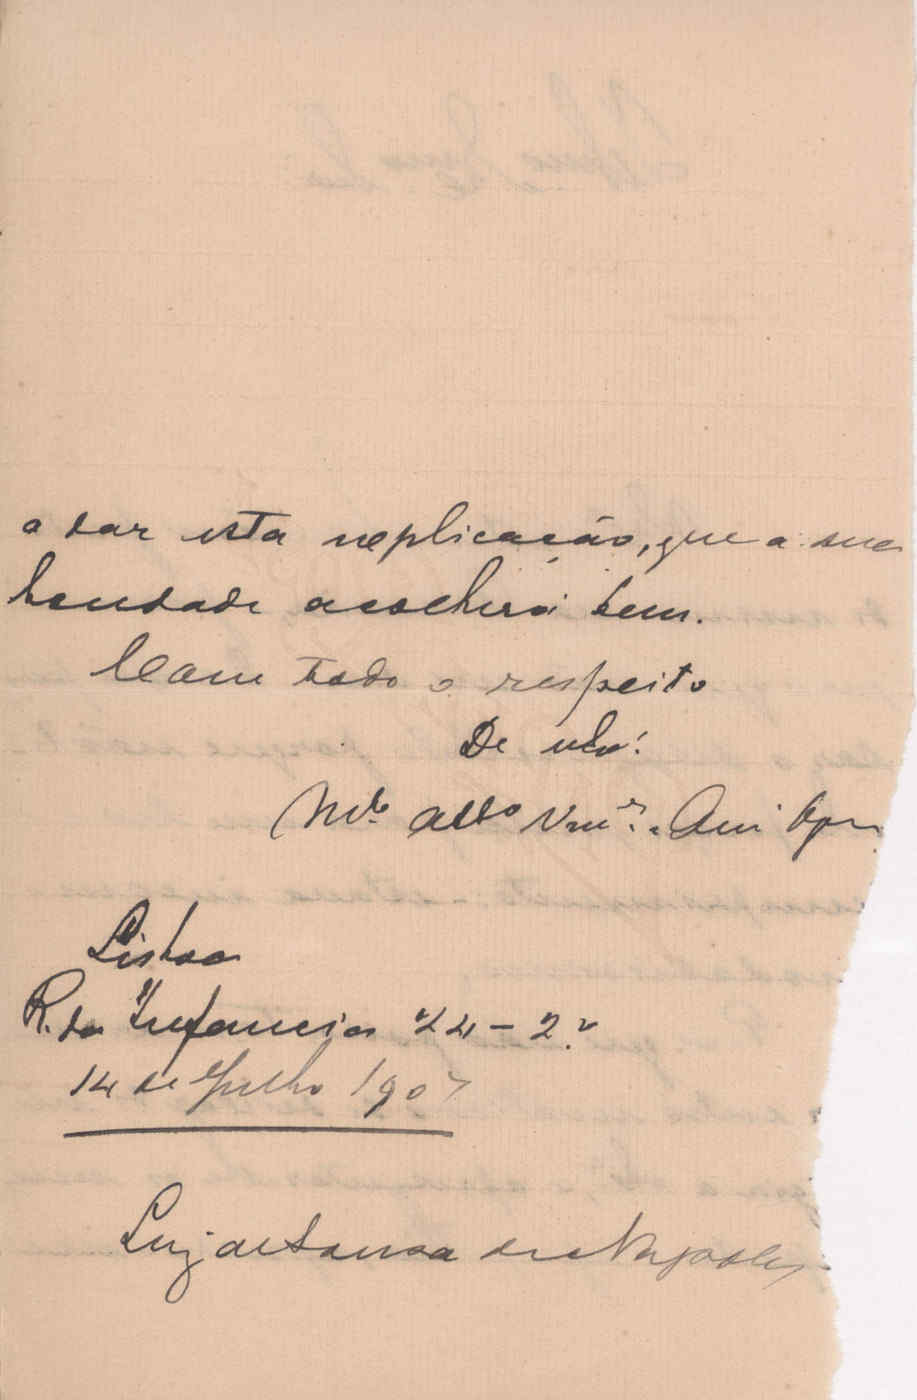 a dar esta explicação, que a sua
bondade acolherá bem.
Com todo o respeito
De v.
M.to Att.o Ven.or
Lisboa
R. da Infancia 24 - 2.º
14 de Julho 1907
Luiz de Sousa de Napoles